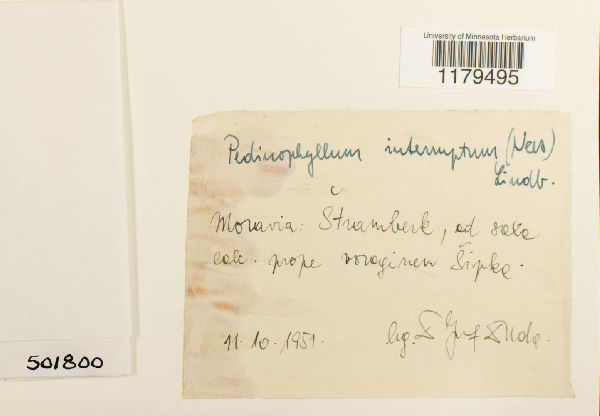 University of Minnesota Herbarium
1179495
Pedinophyllum interruptum (Nees)
Lindb.
Moravia: Štramberk, ad saxa
calc. prope voraginem Šipka.
11.10.1951. leg. Duda.
501800